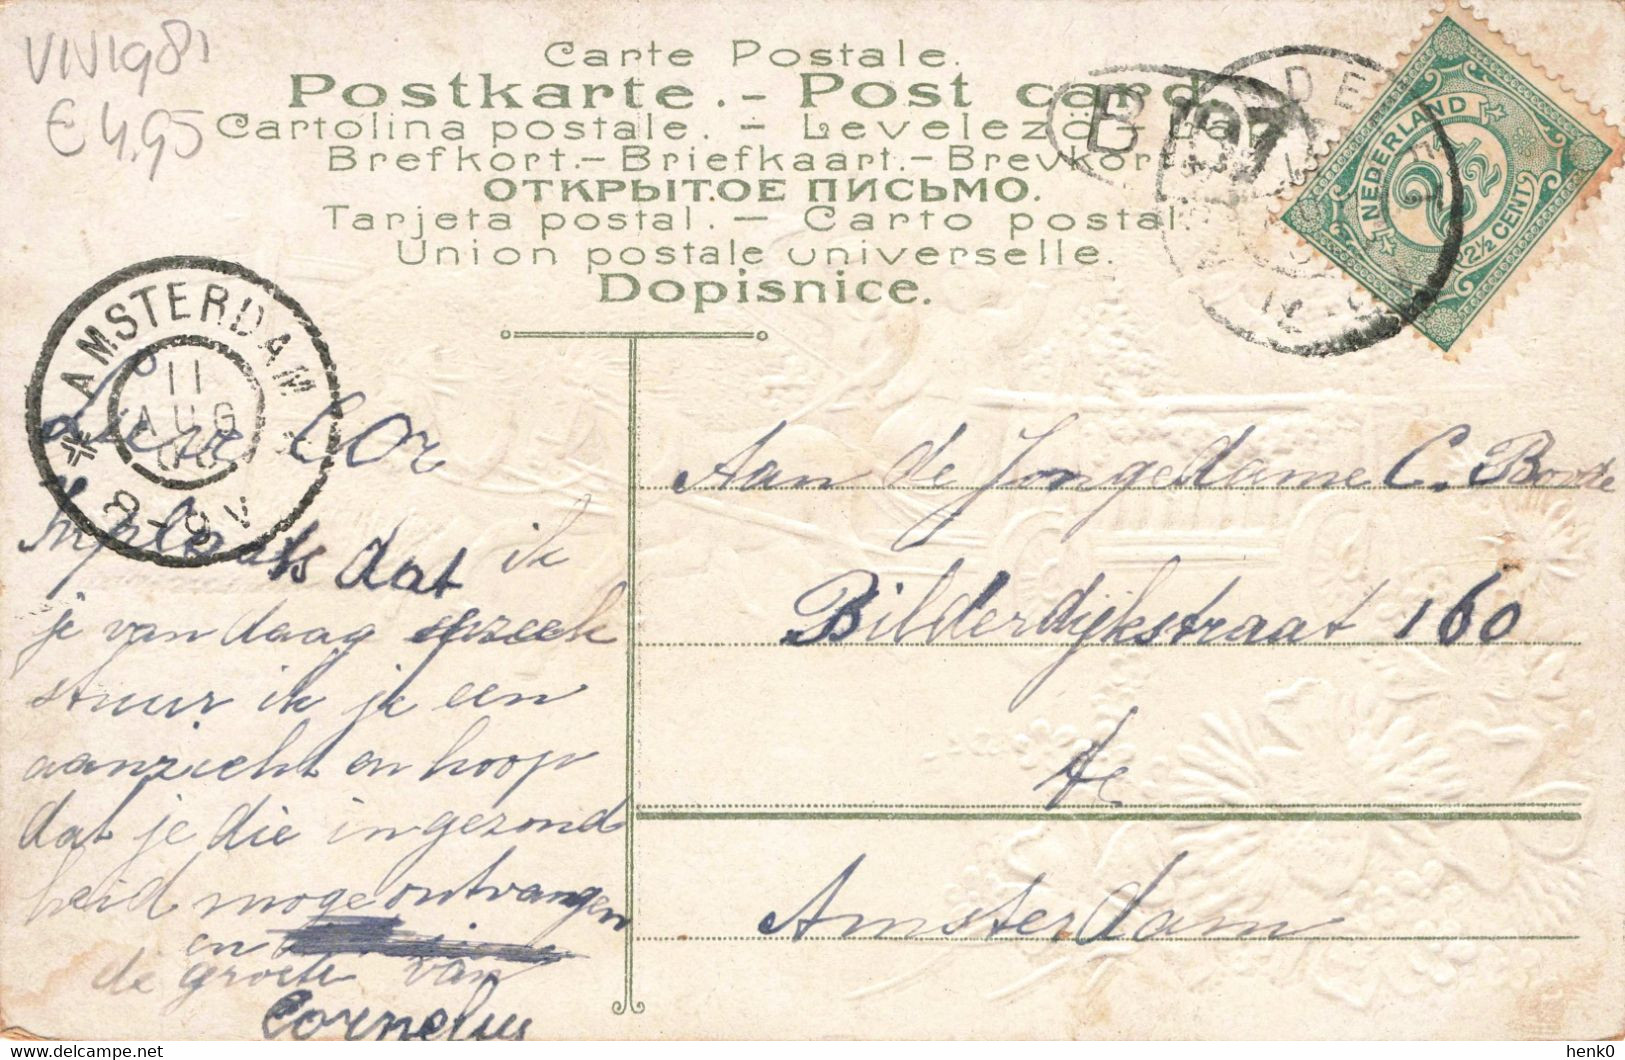 VIV1981
€ 4,95
Carte Postale.
Postkarte.- Post card.
Cartolina postale. - Levelezö-Lap
Brefkort.- Briefkaart.- Brevkort
ОТКРЫТ.ОЕ ПИСЬМО.
Tarjeta postal. - Carto postal.
Union postale universelle.
Dopisnice.
NEDERLAND
2½
2½ CENT
AMSTERDAM
11
AUG
8-9V
Lieve Cor
inplaats dat ik
je van daag spreek
stuur ik je een
aanzicht en hoop
dat je die in gezond
heid moge ontvangen
en
de groete van
Cornelus
Aan de Jongedame C. Bonde
Bilderdijkstraat 160
te
Amsterdam
delcampe.net
henk0